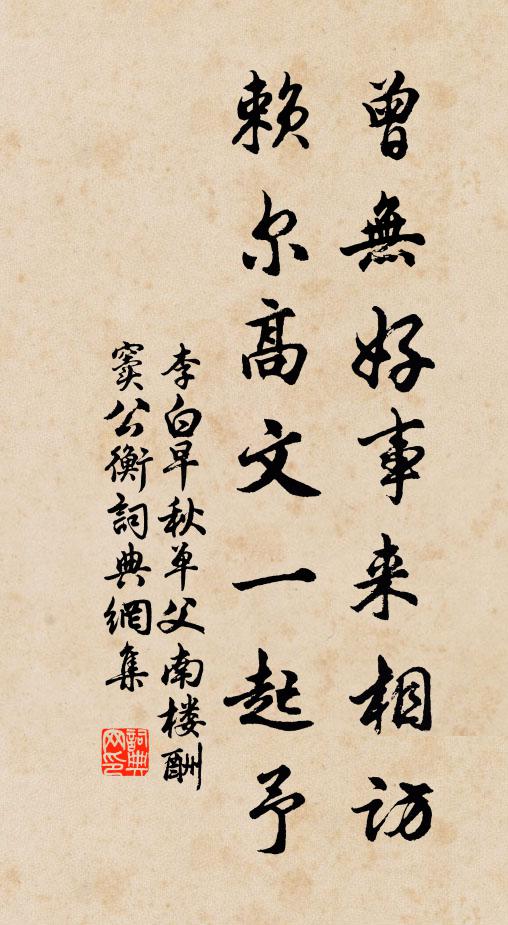 曾無好事来相訪
赖尔高文一起予
李白早秋单父南楼酬
窦公衡詞典網集
詞典网印